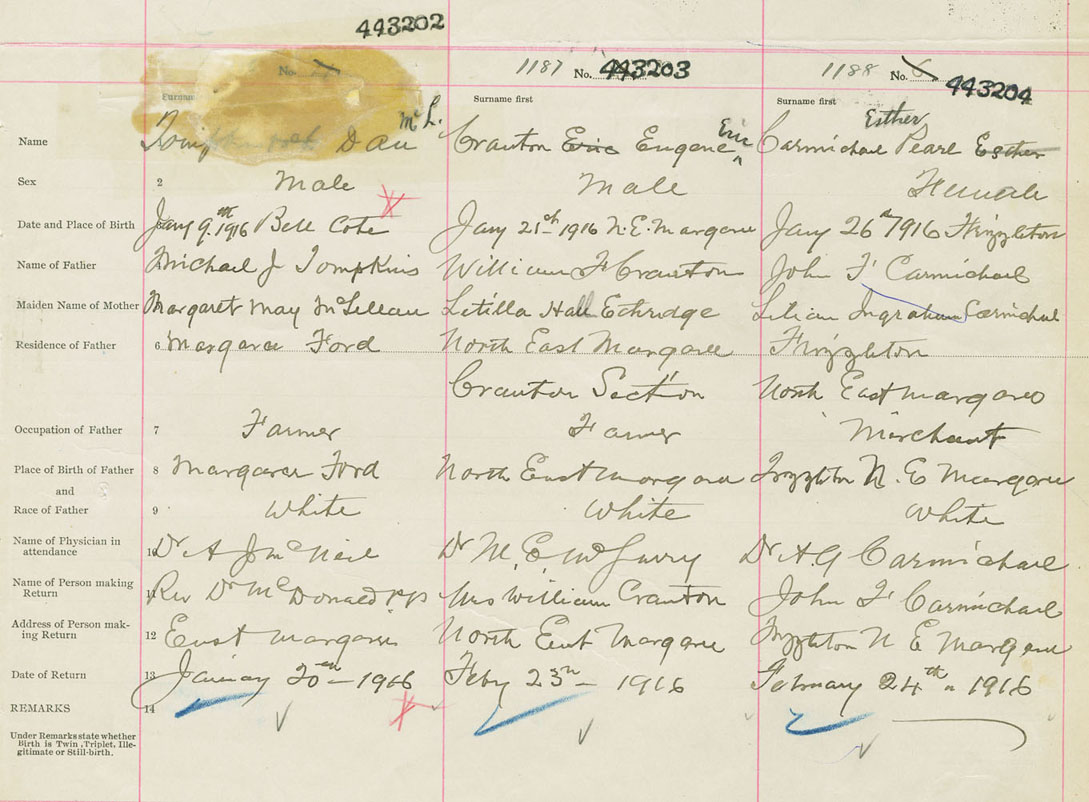 443202
No. 1187 No. 443203 1188 No. 6 443204
Surname first Surname first
Name Dan McL. Cranton Eric Eugene Eric Carmichael Pearl Esther Esther
Sex 2 Male Male Female
Date and Place of Birth Jany 9th 1916 Bell Cote Jany 21st 1916 N.E. Margaree Jany 26th 1916 Frizzleton
Name of Father Michael J Tompkins William F Cranton John F Carmichael
Maiden Name of Mother Margaret May McLellan Letilla Hall Ethridge Lilian Ingraham Carmichael
Residence of Father 6 Margaree Ford North East Margaree Frizzleton
Cranton Section North East Margaree
Occupation of Father 7 Farmer Farmer Merchant
Place of Birth of Father 8 Margaree Ford North East Margaree Frizzleton N. E Margaree
and
Race of Father 9 White White White
Name of Physician in
attendance 10 Dr A J McNeil Dr M. E. McGarry Dr A. G Carmichael
Name of Person making
Return 11 Rev Dr McDonald P.P. Mrs William Cranton John F Carmichael
Address of Person mak-
ing Return 12 East Margaree North East Margaree Frizzleton N E Margaree
Date of Return 13 January 20th 1916 Feby 23rd 1916 February 24th 1916
REMARKS 14
Under Remarks state whether
Birth is Twin, Triplet, Ille-
gitimate or Still-birth.